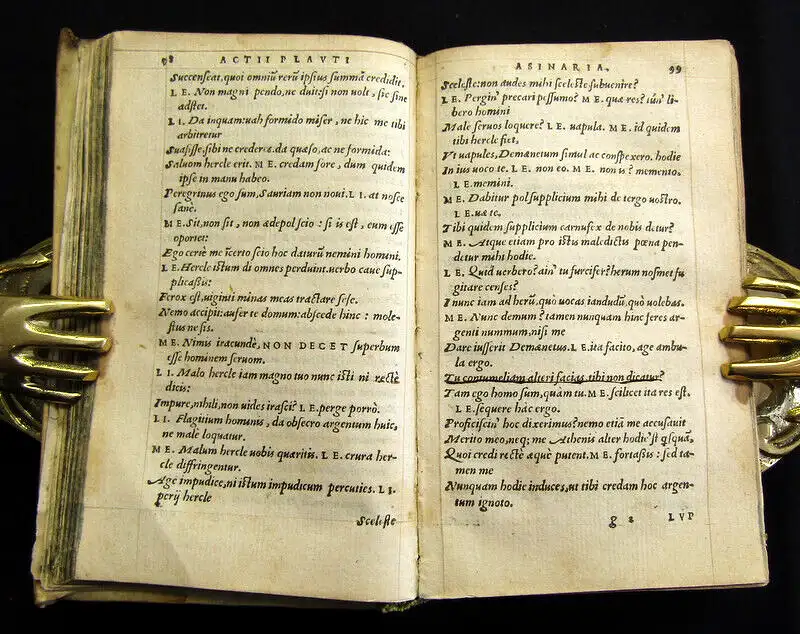 98 ACTII PLAVTI
Succenseat, quoi omniũ rerũ ipsius summã credidit.
L E. Non magni pendo, ne duit, si non uolt, sic sine
adstet.
L I. Da inquam: uah formido miser, ne hic me tibi
arbitretur
Suasisse, sibi ne crederes. da quæso, ac ne formida:
Saluom hercle erit. M E. credam fore, dum quidem
ipse in manu habeo.
Peregrinus ego sum, Sauriam non noui. L I. at nosce
sanè.
M E. Sit, non sit, non ædepol scio: si is est, eum esse
oportet:
Ego certè me ĩcerto scio hoc daturũ nemini homini.
L E. Hercle istum di omnes perduint. uerbo caue sup-
plicaßis:
Ferox est, uiginti minas meas tractare sese.
Nemo accipit: aufer te domum: abscede hinc: mole-
stus ne sis.
M E. Nimis iracundè, NON DECET superbum
esse hominem seruom.
L I. Malo hercle iam magno tuo nunc isti ni rectè
dicis:
Impure, nihili, non uides irasci? L E. perge porrò.
L I. Flagitium hominis, da obsecro argentum huic,
ne malè loquatur.
M E. Malum hercle uobis quæritis. L E. crura her-
cle diffringentur.
Age impudice, ni istum impudicum percuties. L I.
perij hercle
Sceleste
ASINARIA. 99
Sceleste: non audes mihi sceleste subuenire?
L E. Pergin' precari peßumo? M E. quæ res? tún' li-
bero homini
Malè seruos loquere? L E. uapula. M E. id quidem
tibi hercle fiet,
Vt uapules, Demænetum simul ac conspexero. hodie
In ius uoco te. L E. non eo. M E. non is? memento.
L E. memini.
M E. Dabitur pol supplicium mihi de tergo uostro.
L E. uæ te,
Tibi quidem supplicium carnufex de nobis detur?
M E. Atque etiam pro istis maledictis pœna pen-
detur mihi hodie.
L E. Quid uerbero? ain' tu furcifer? herum nosmet fu
gitare censes?
I nunc iam ad herũ, quò uocas iandudũ, quò uolebas.
M E. Nunc demum? tamen nunquam hinc feres ar-
genti nummum, nisi me
Dare iusserit Demænetus. L E. ita facito, age ambu-
la ergo.
Tu contumeliam alteri facias, tibi non dicatur?
Tam ego homo sum, quàm tu. M E. scilicet ita res est.
L E. sequere hac ergo.
Præfiscin' hoc dixerimus? nemo etiã me accusauit
Merito meo, neq; me Athenis alter hodie'st quisquã,
Quoi credi rectè æquè putent. M E. fortaßis: sed ta-
men me
Nunquam hodie induces, ut tibi credam hoc argen-
tum ignoto.
g 2 LVP